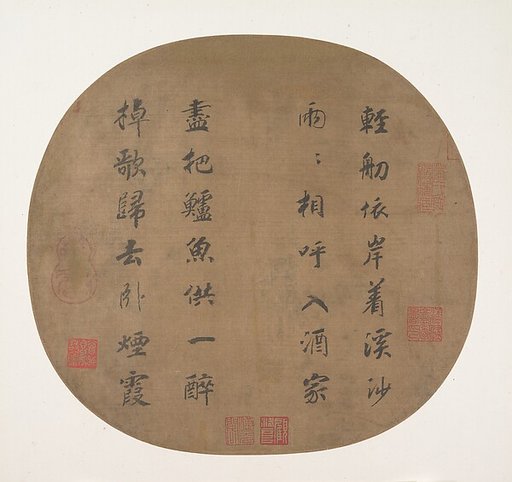 輕舠依岸着溪沙
兩〻相呼入酒家
盡把鱸魚供一醉
掉歌歸去卧煙霞